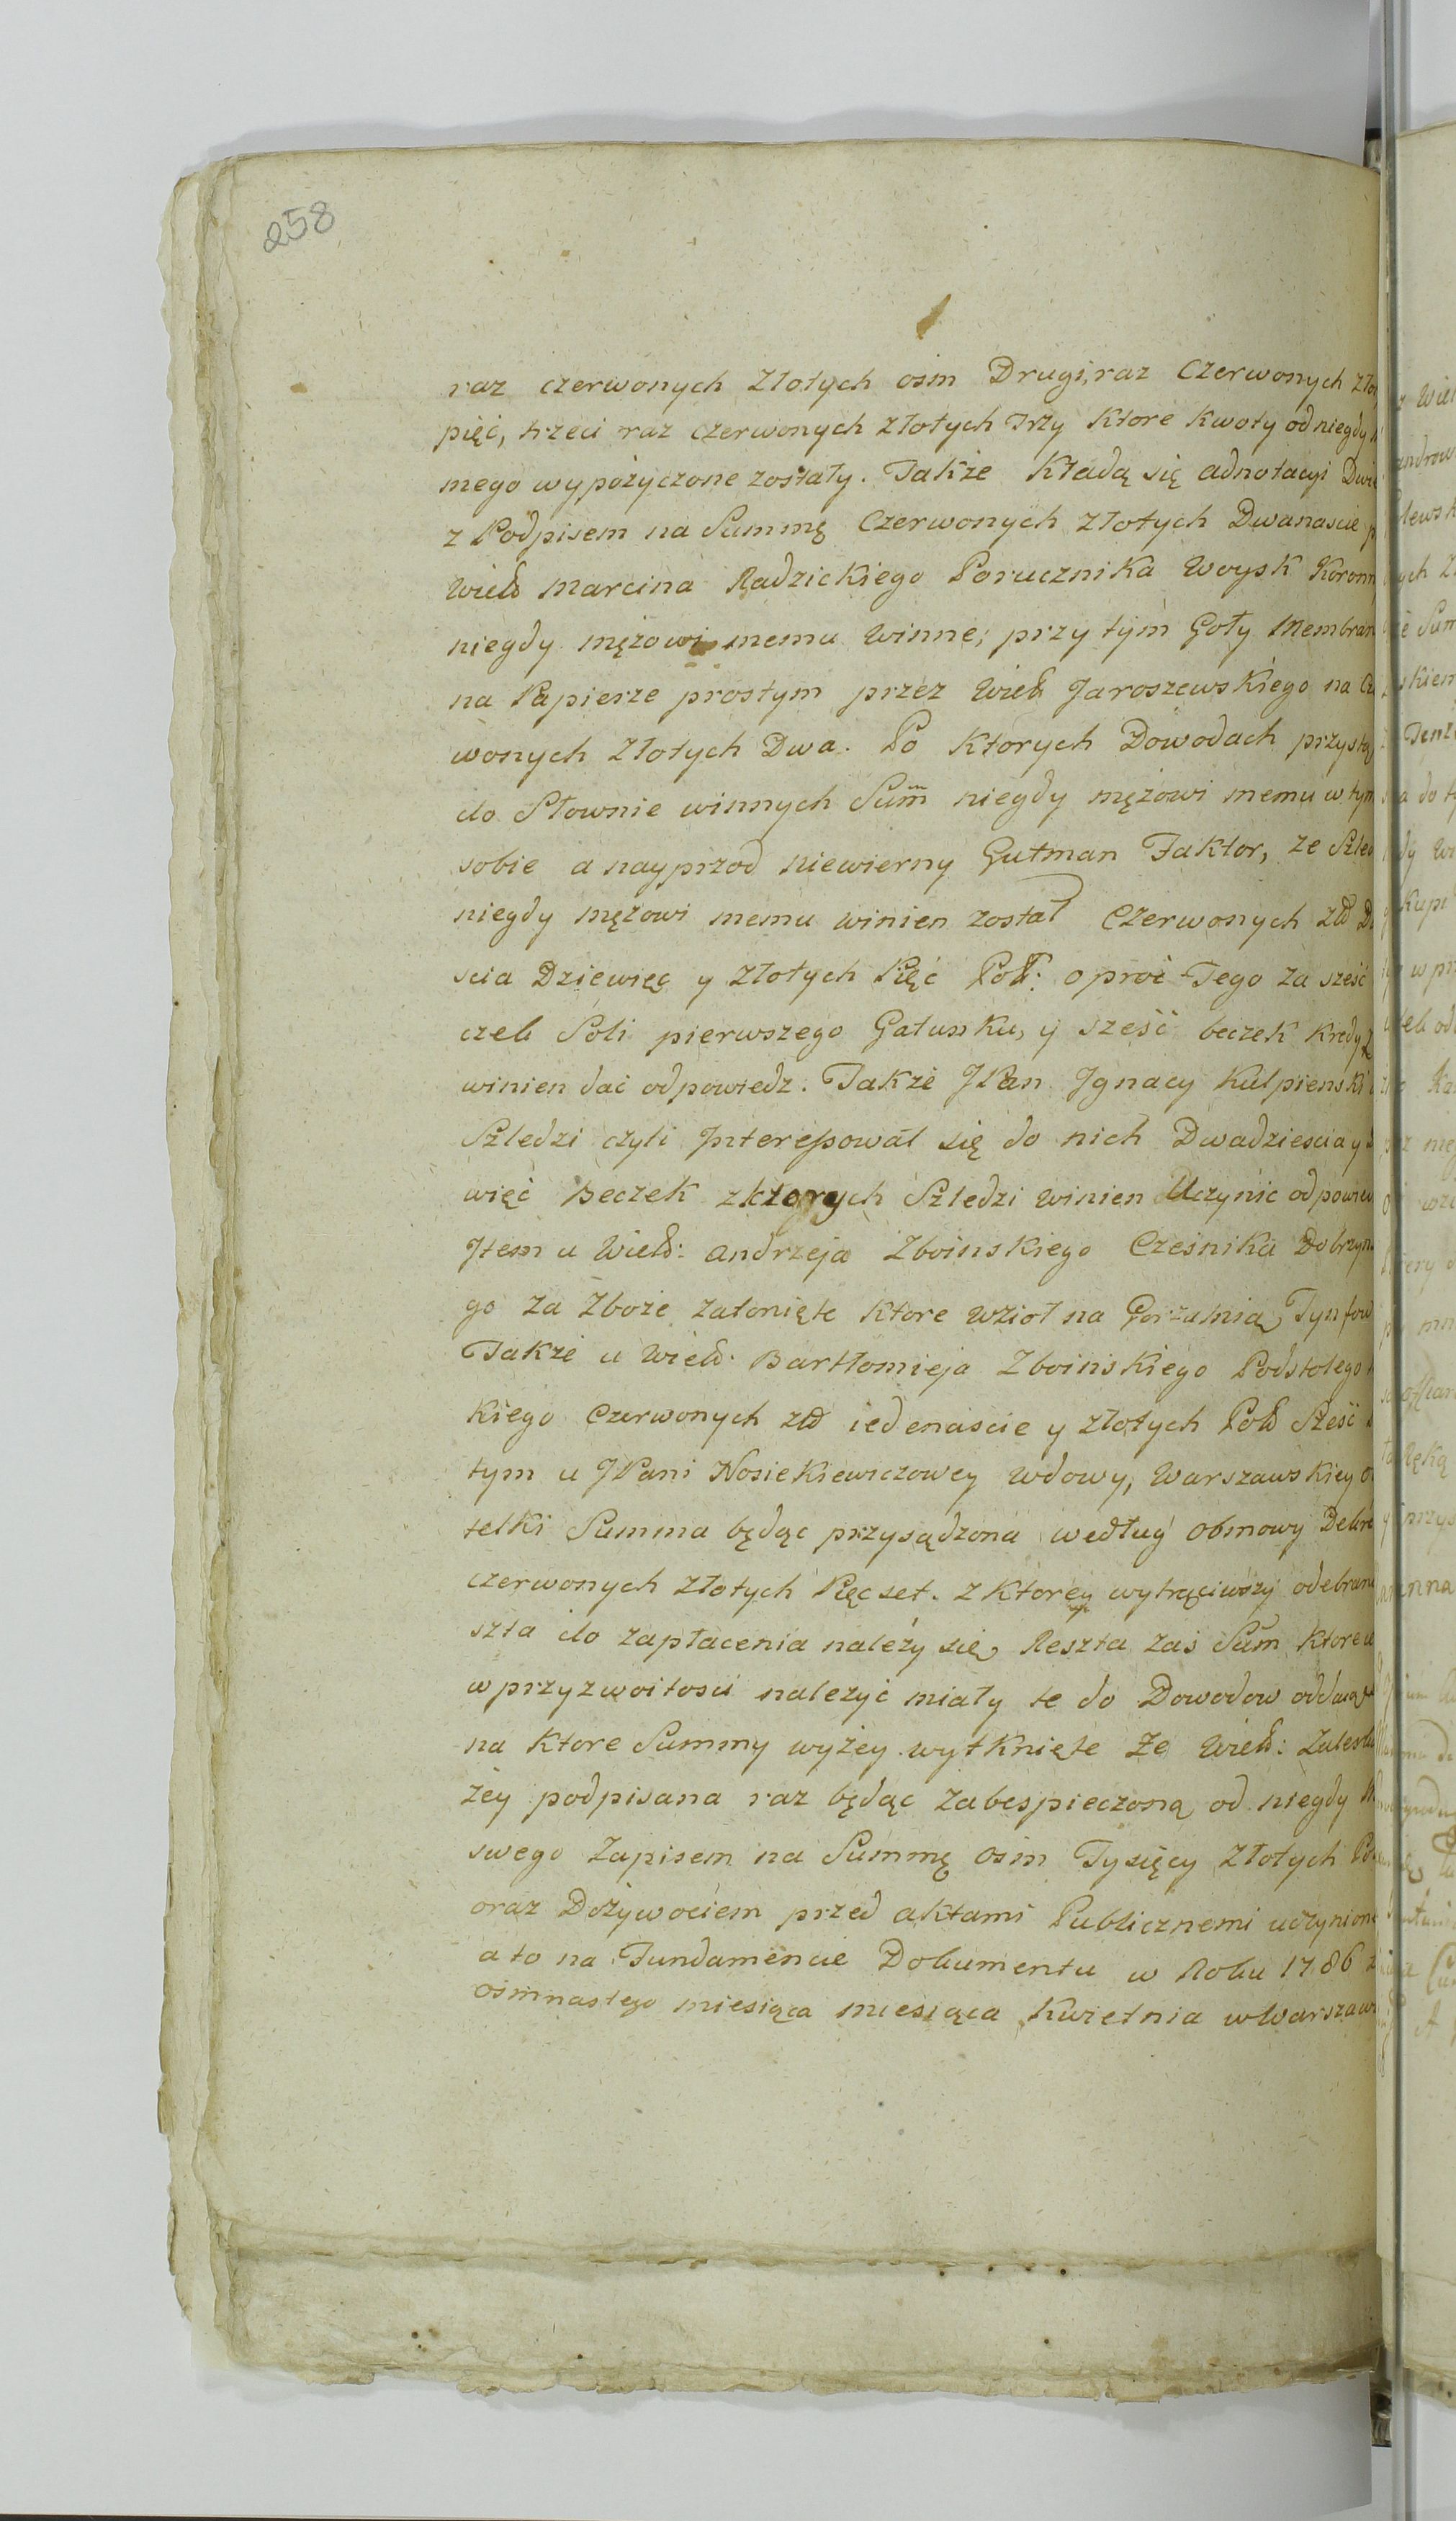 258
raz czerwonych Złotych osm Drugi, raz Czerwonych Zło
pięć, trzeci raz czerwonych złotych Trzy Ktore Kwoty od niegdy
mego wypożyczone zostały. Także Kładą się adnotacyi Dwie
z Podpisem na Summę Czerwonych Złotych Dwanascie p
Wielb Marcina Radzickiego Porucznika Woysk Koronn
niegdy mężowi memu Winne; przy tym Goły Membran
na Papierze prostym przez Wielb Jaroszewskiego na Cz
wonych Złotych Dwa. Po Ktorych Dowodach przystą
do Słownie winnych Sum̃ niegdy mężowi memu w tym
sobie a nayprzod niewierny Gutman Faktor, ze Szled
niegdy mężowi memu winien został Czerwonych Zł D
scia Dziewięc y Złotych Pięć Pol: oprоć Tego za sześć
czek Soli pierwszego Gatunku, y sześć beczek kredy
winien dać odpowiedz. Także JPan Jgnacy Kulpienski
Szledzi czyli Jnteressował się do nich Dwadziescia y
więć Beczek z ktorych Szledzi winien Uczynic odpowied
Jtem u Wielb: Andrzeja Zboinskiego Cześnika Dobrzyn
go za Zboże zatonięte Ktore wzioł na Gorzalnią Tynfow
Także u Wielb. Bartłomieja Zboinskiego Podstolego
kiego Czerwonych zł iedenascie y złotych Pol Sześć
tym u JPani Nosiekiewiczowey Wdowy, Warszawskiey O
telki Summa będąc przysądzona według obmowy Dekre
czerwonych złotych Pięcset. z Ktorey wytrąciwszy odebran
szta do zapłacenia należy się, Reszta zaś Sum̃ Ktore
w przyzwoitosci należyć miały te do Dowodow oddaią
na Ktore Summy wyżey wytknięte Ze Wielb: Zalesk
żey podpisana raz będąc Zabespieczoną od niegdy M
swego Zapisem na Summę Osm Tysięcy Złotych Po
oraz Dożywociem przed aktami Publicznemi uczynion
a to na Fundamencie Dokumentu w Roku 1786
osmnastego miesiąca miesiąca Kwietnia w Warszaw